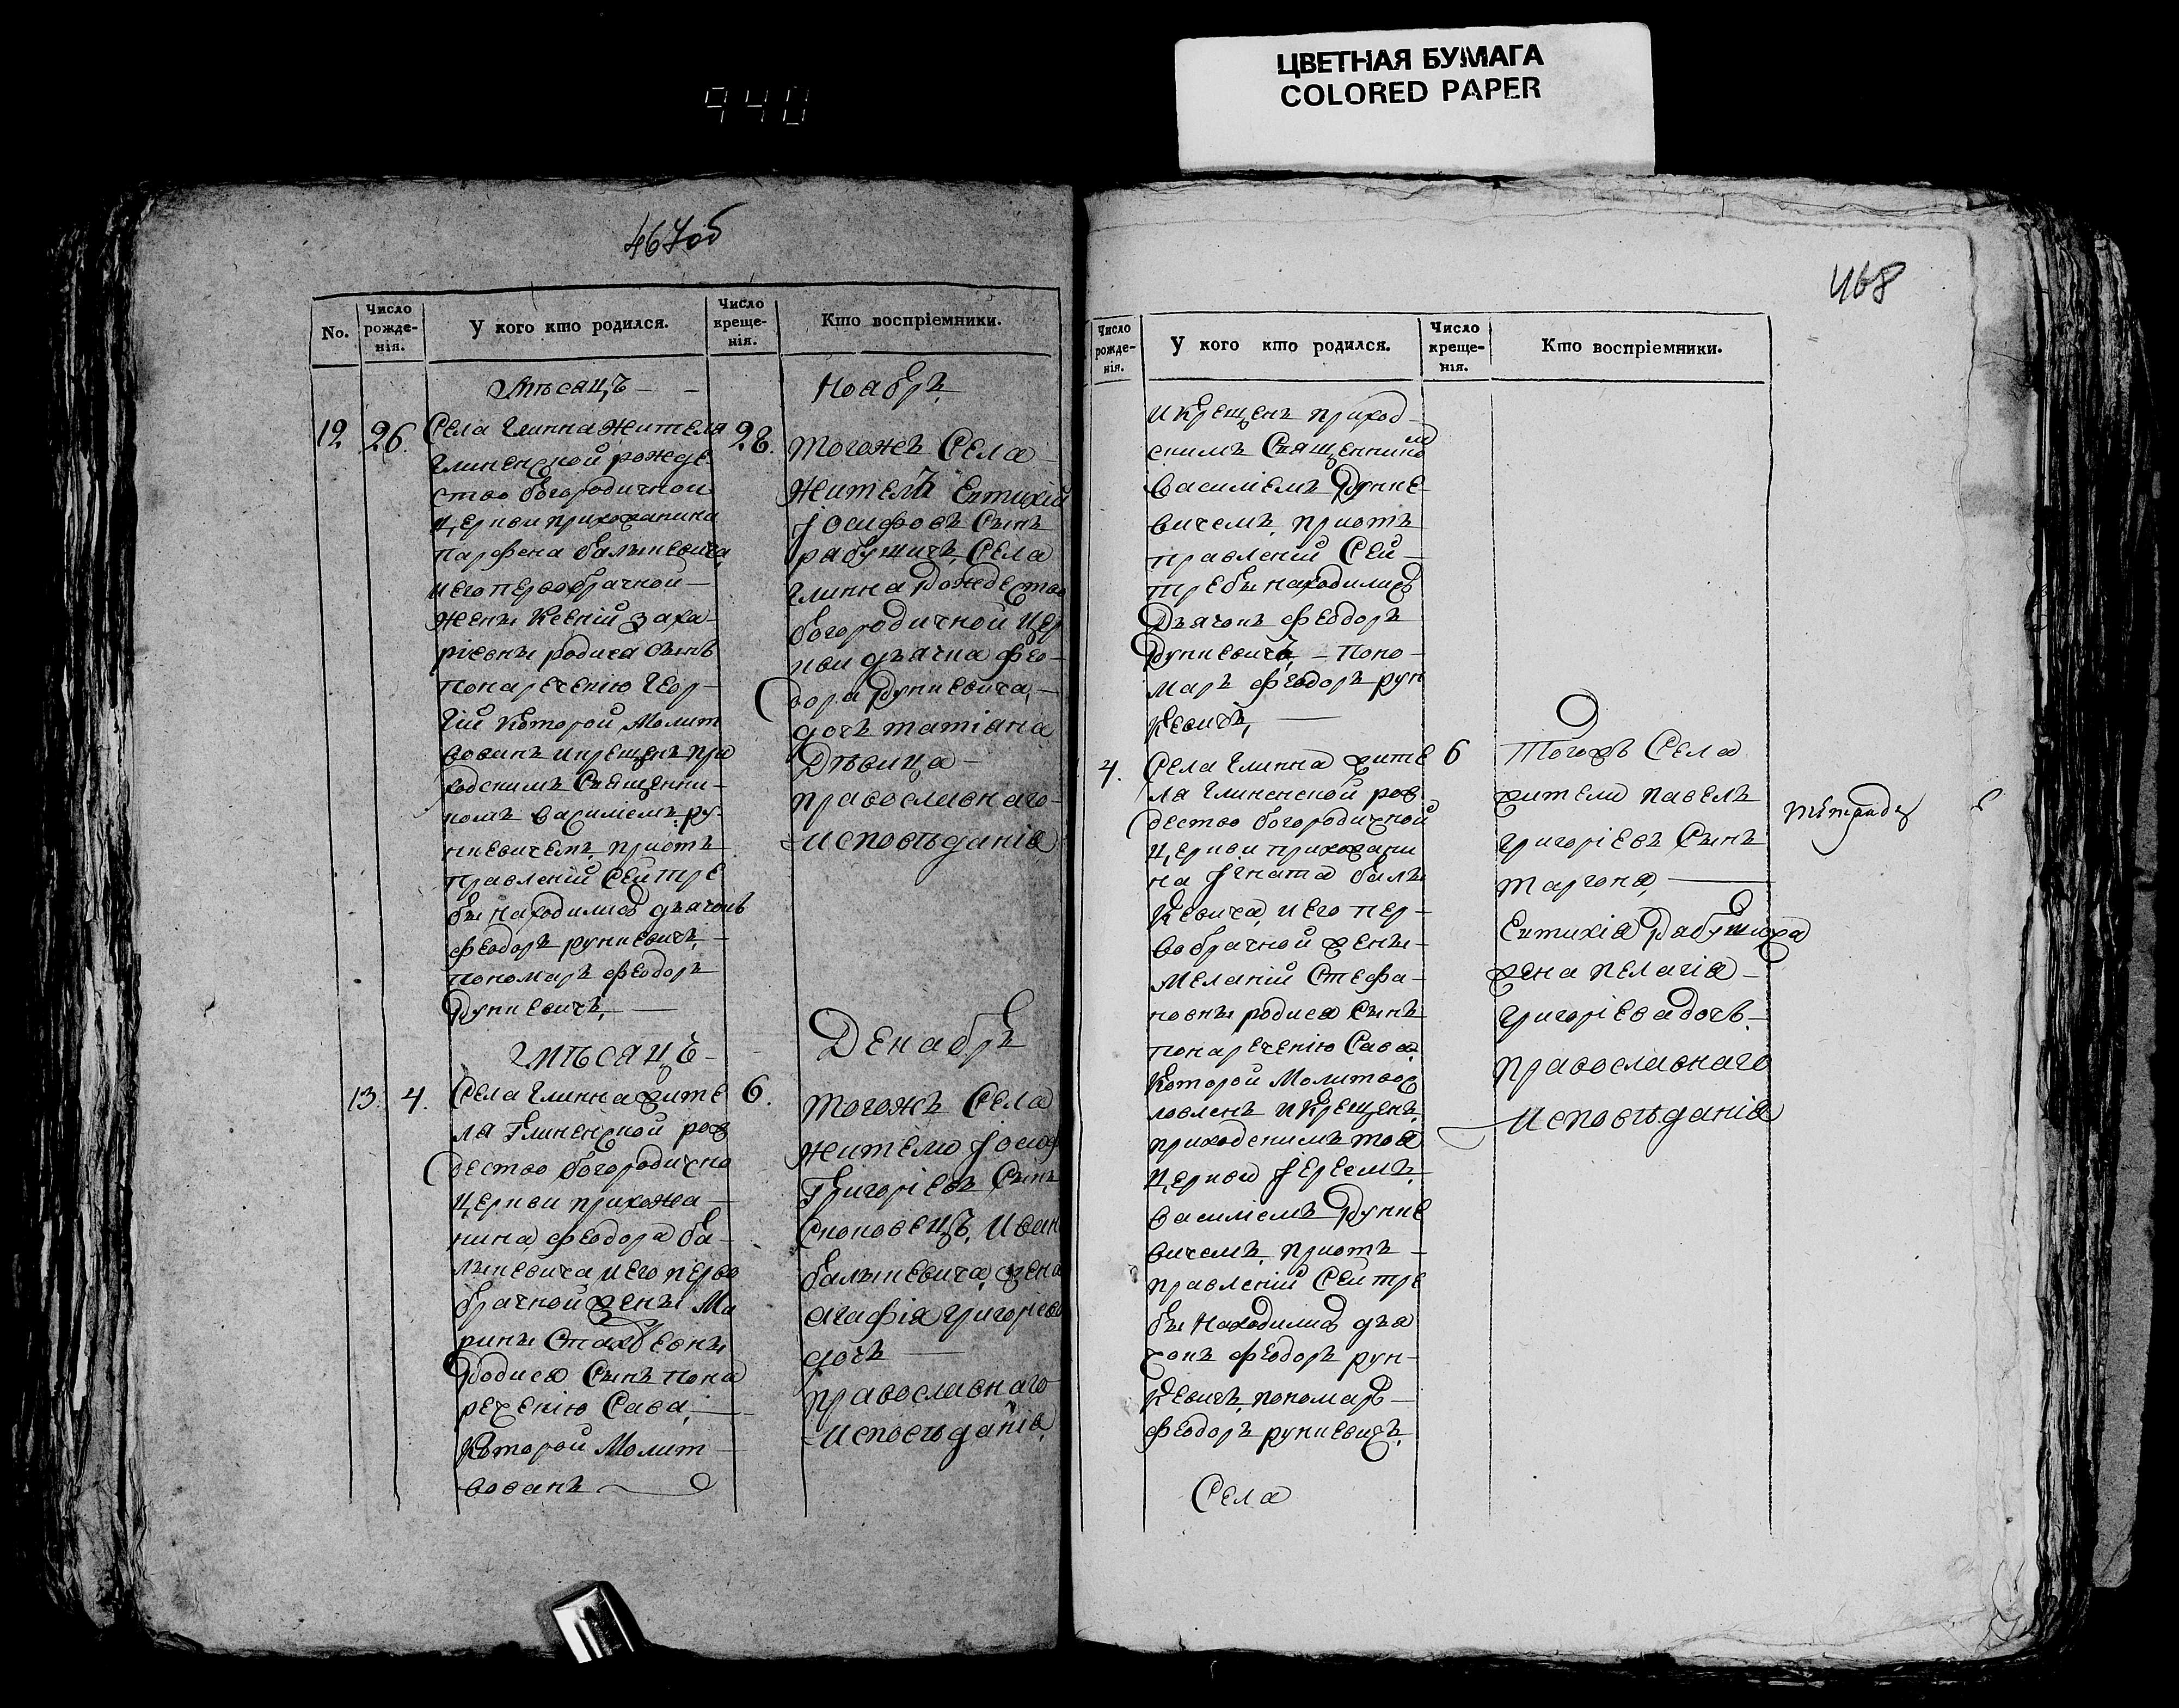 ЦВЕТНАЯ БУМАГА
COLORED PAPER
940
467об
No.
Число рожде-нія.
У кого кто родился.
Число креще-нія.
Кто воспріемники.
Мѣсяцъ
Ноабрь
12
26.
Села Глинна Жителя
Глиненской рожде
ство богородичной
Церкви прихожанина
Парфена балькевича
и его первобрачной
жены Ксеній Заха-
ріевны родися Сынъ
понареченію Геор-
гій которой Молит
вованъ и крещенъ при
ходскимъ Священни-
комъ Василіемъ Ру-
нкевичемъ, приотъ
правленій Сей тре
бы находились дьячокъ
Феодоръ рункевичъ,
пономарь Феодоръ
Рункевичъ,
28.
Тогожъ Села
Житель Евтихій
Іосифовъ Сынъ
рабушичъ, Села
Глинна Рождество
богородичной Цер
кви дьячка Фео-
дора Рункевича,
дочь татіана
Дѣвица
православнаго
Исповѣданія
Мѣсяцъ
Декабрь
13.
4.
Села Глинна жите
ля Глиненской рож
дество богородично
Церкви прихожа-
нина, Феодора ба-
лькевича и его перво
брачной жены Ма
рины Стахѣевны
Родися Сынъ пона
реченію Сава,
Которой Молит
вованъ
6.
Тогожъ Села
жителю Іосиф
Григоріевъ Сынъ
Сноповецъ, Иван
балькевича, жена
Агафія Григорьев
дочь
православнаго
Исповѣданія
468
Число рожде-нія.
У кого кто родился.
Число креще-нія.
Кто воспріемники.
и крещенъ приход-
скимъ Священнико
Василіемъ Рунке-
вичемъ, приотъ
правленій Сей
требы находились
Дьячокъ Феодоръ
Рункевичъ, Поно-
марь Феодоръ рун
кевичъ,
4.
Села Глинна жите
ля Глиненской рож
дество богородичной
Церкви прихожани
на Ігната балы
кевича, и его пер-
вобрачной жены
Меланій Стефа-
новны родися Сынъ
понареченію Сава,
Которой Молитвос
ловленъ и Крещенъ,
приходскимъ тоя
Церкви Іереемъ,
Василіемъ Рунке
вичемъ, приотъ
правленій Сей тре
бы Находились дья
чокъ Феодоръ рун-
кевичъ, пономарь
Феодоръ рункевичъ,
6
Тогожъ Села
жители павелъ
Григоріевъ Сынъ
таргоня,
Евтихія Рабушиха
жена пелагія
Григоріева дочь.
православнаго
Исповѣданія
Села